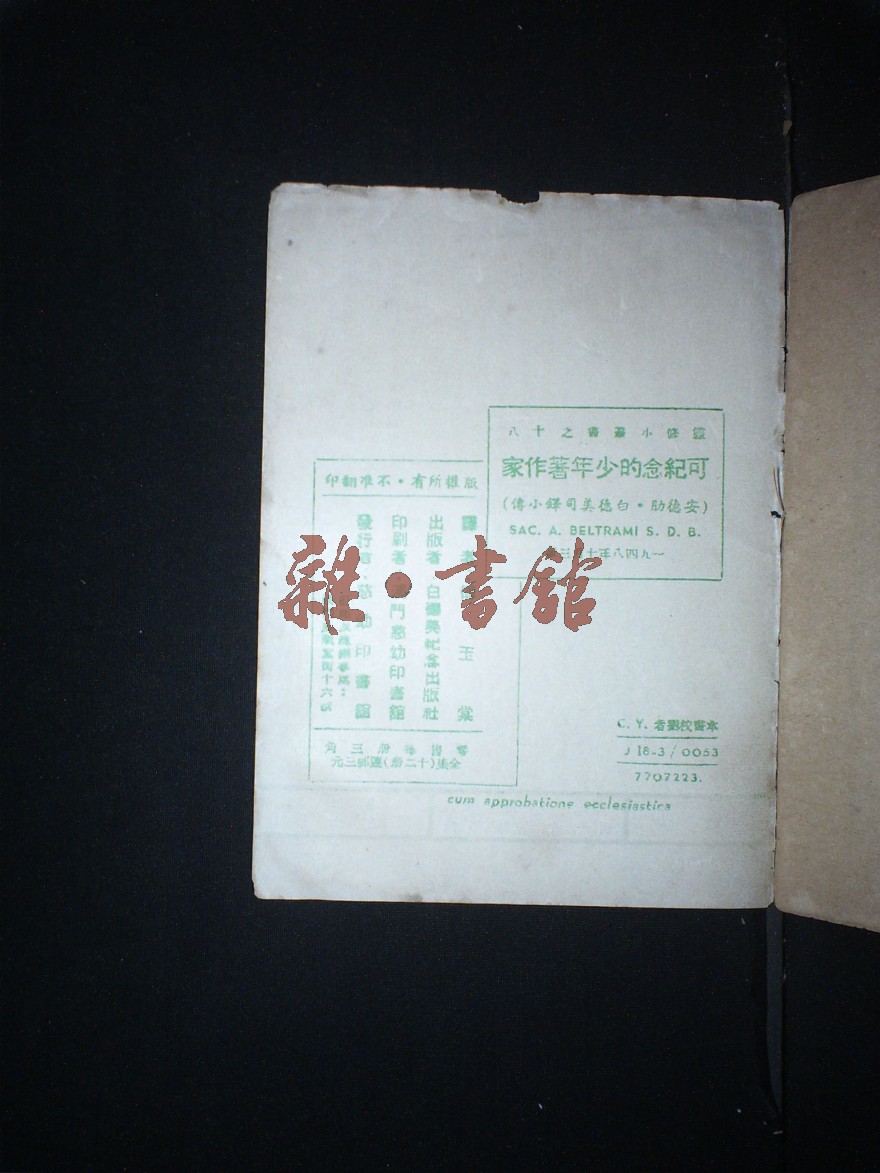 靈修小叢書之十八
可紀念的少年著作家
(安德肋·白德美司鐸小傳)
SAC. A. BELTRAMI S. D. B.
一九四八年十
版權所有·不准翻印
譯 玉棠
出版者 白德美紀念出版社
印刷者 門慈幼印書館
發行者·慈幼印書館
街十六號
零售每冊三角
全集(十二冊)連郵三元
本書校對者 C. Y.
J 18-3 / 0053
7707223.
cum approbatione ecclesiastica
雜·書館